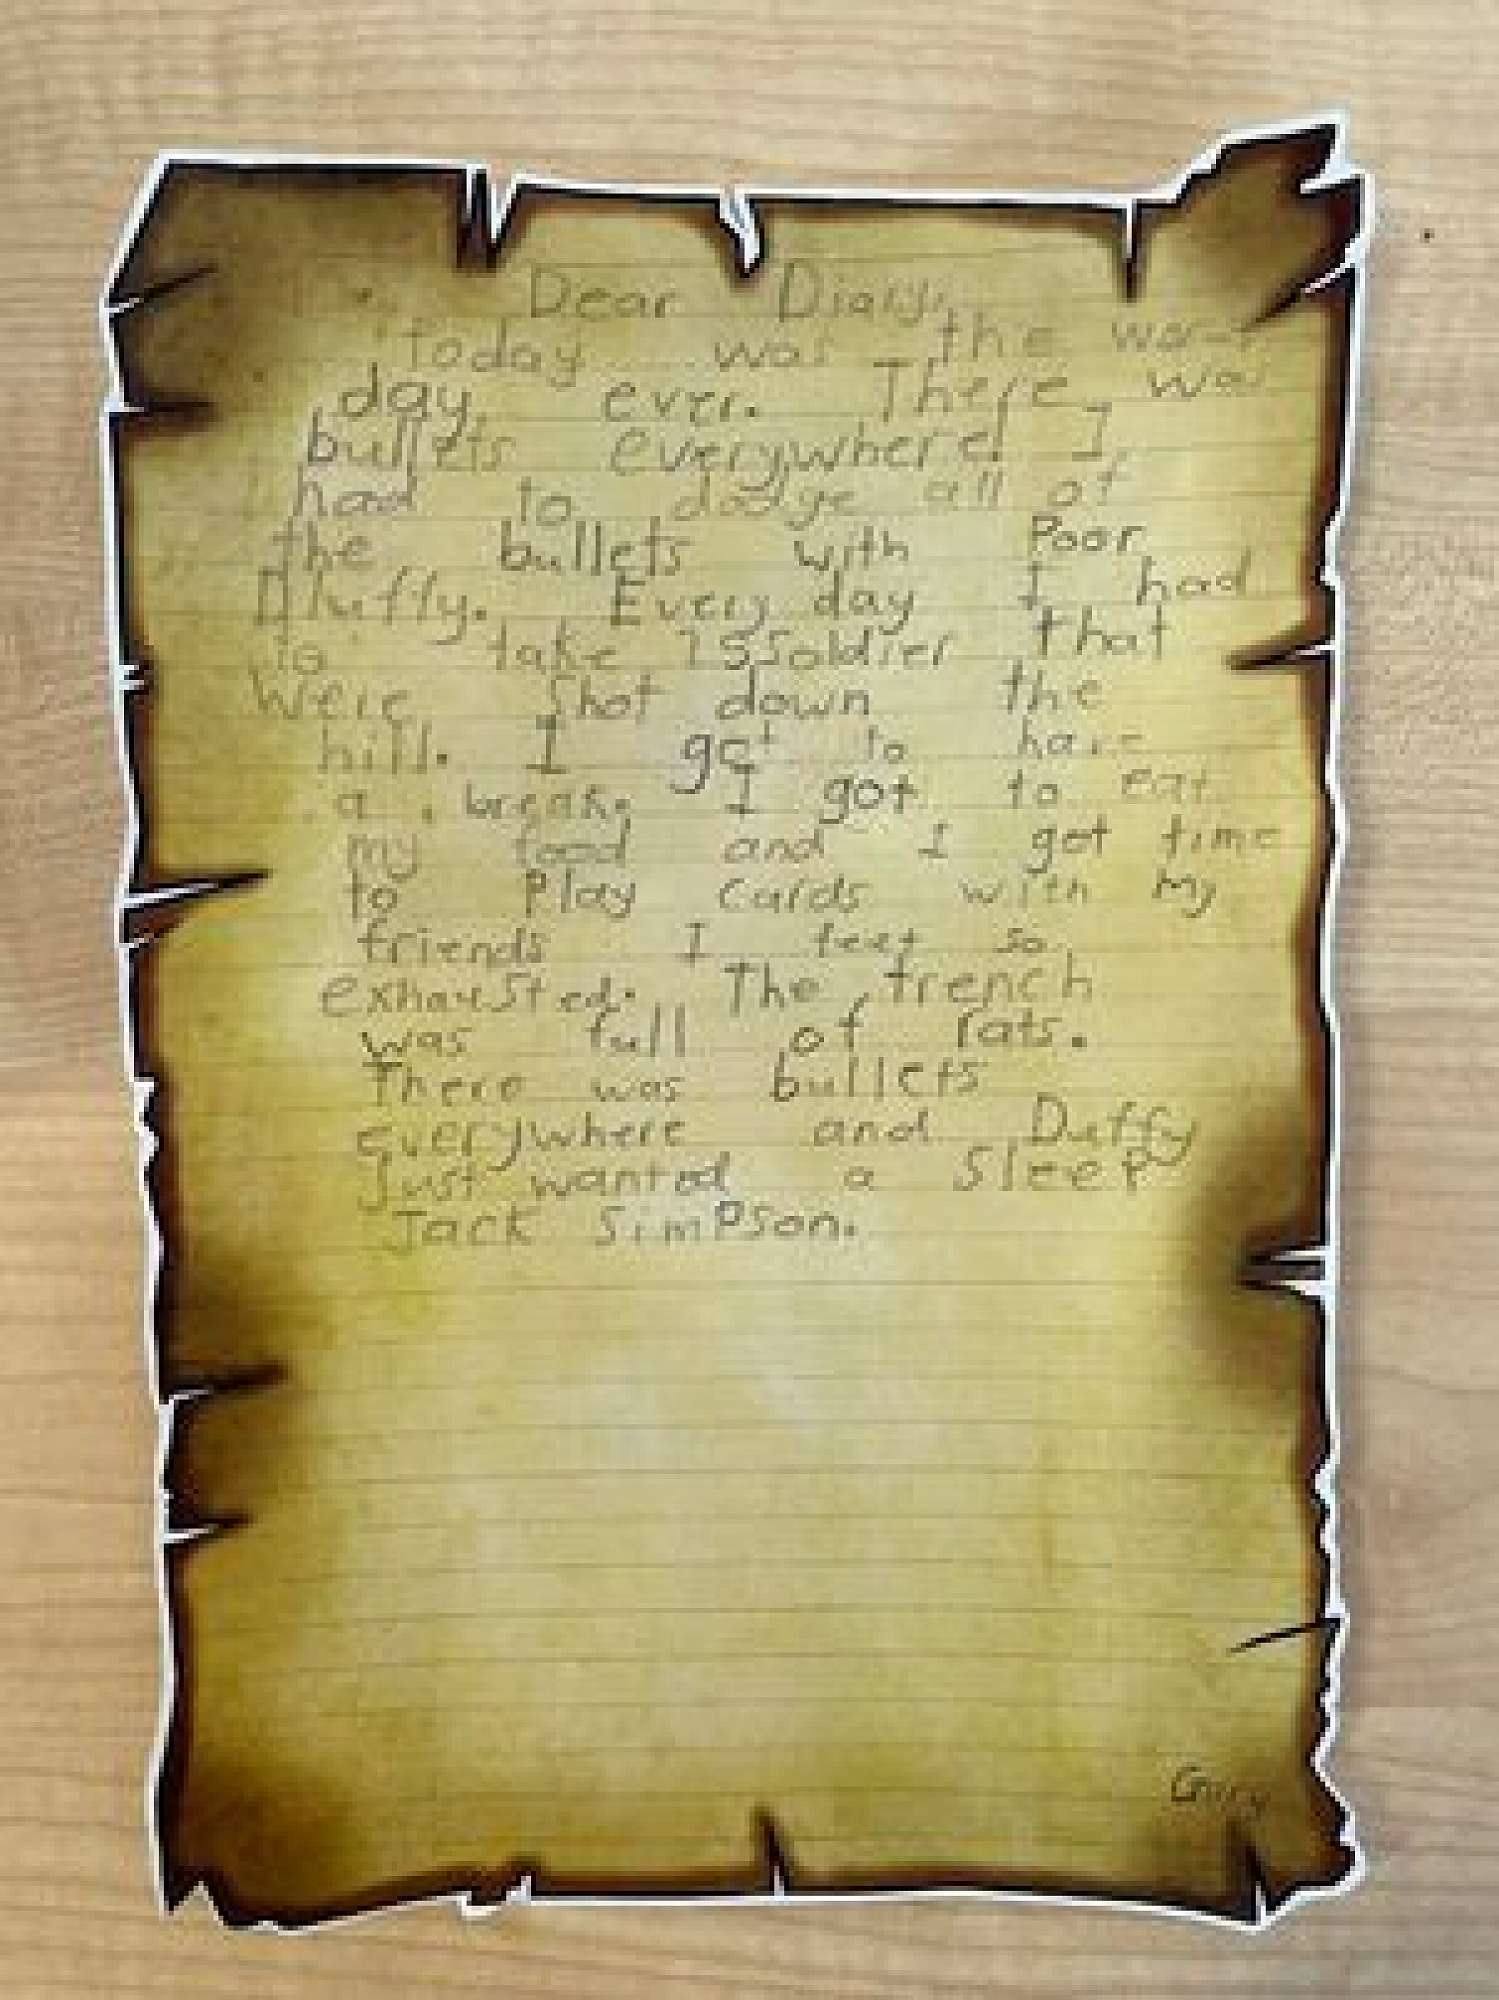 Dear Diary,
today was the
day ever. There was
bullets everywhere! I
had to dodge all of
the bullets with Poor
Duffy. Every day I had
to take 15 Soldier that
Were Shot down the
hill. I got to have
a break. I got to eat
my food and I got time
to Play cards with my
friends I feet so
exhausted. The trench
was full of rats.
There was bullets
everywhere and Duffy
Just wanted a sleep
Jack SimPson.